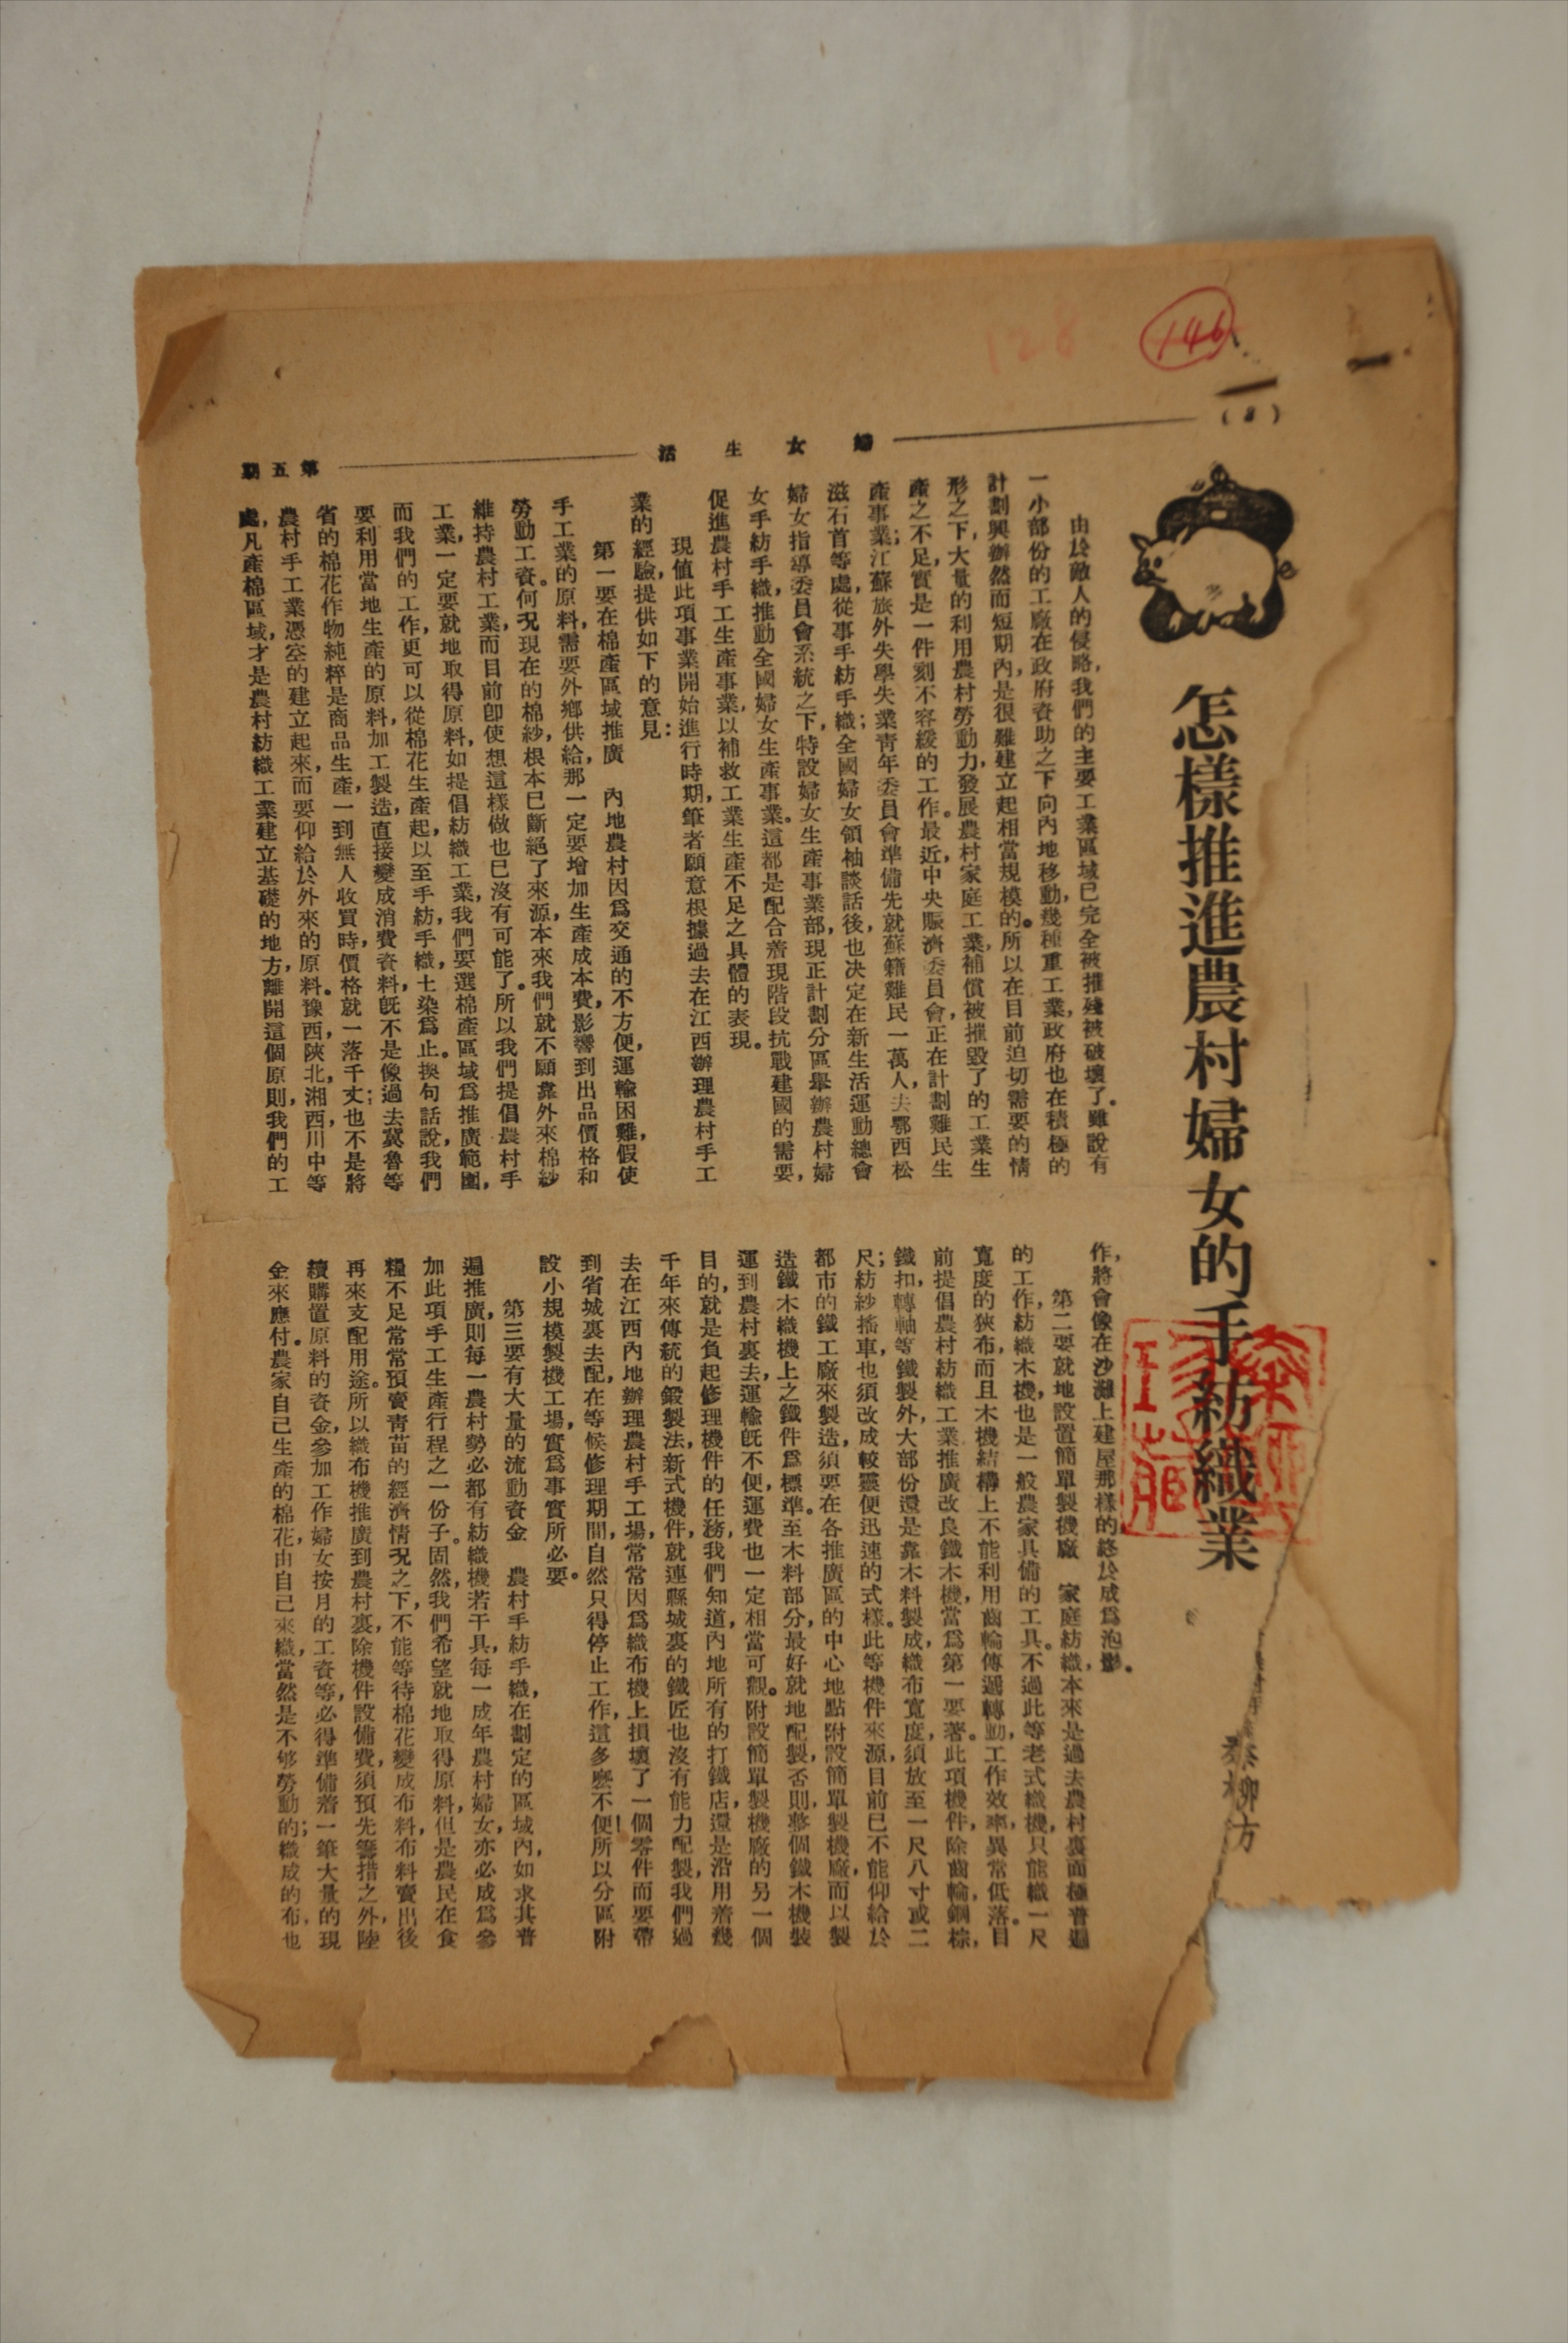 146
128
(8)
婦女生活
第五期
怎樣推進農村婦女的手紡織業
秦柳方
由於敵人的侵略，我們的主要工業區域已完全被摧殘被破壞了。雖說有
一小部份的工廠在政府資助之下向內地移動，幾種重工業，政府也在積極的
計劃興辦然而短期內，是很難建立起相當規模的。所以在目前迫切需要的情
形之下，大量的利用農村勞動力，發展農村家庭工業，補償被摧毀了的工業生
產之不足，實是一件刻不容緩的工作。最近，中央賑濟委員會，正在計劃難民生
產事業；江蘇旅外失學失業青年委員會準備先就蘇籍難民一萬人，去鄂西松
滋石首等處，從事手紡手織；全國婦女領袖談話後，也決定在新生活運動總會
婦女指導委員會系統之下，特設婦女生產事業部，現正計劃分區舉辦農村婦
女手紡手織，推動全國婦女生產事業。這都是配合着現階段抗戰建國的需要，
促進農村手工生產事業，以補救工業生產不足之具體的表現。
現值此項事業開始進行時期，筆者願意根據過去在江西辦理農村手工
業的經驗，提供如下的意見：
第一要在棉產區域推廣　內地農村因爲交通的不方便，運輸困難，假使
手工業的原料，需要外鄉供給，那一定要增加生產成本費，影響到出品價格和
勞動工資。何況現在的棉紗，根本已斷絕了來源，本來我們就不願靠外來棉紗
維持農村工業，而目前卽使想這樣做也已沒有可能了。所以我們提倡農村手
工業，一定要就地取得原料，如提倡紡織工業，我們要選棉產區域爲推廣範圍，
而我們的工作，更可以從棉花生產起，以至手紡，手織，土染爲止。換句話說，我們
要利用當地生產的原料，加工製造，直接變成消費資料，旣不是像過去冀魯等
省的棉花作物純粹是商品生產，一到無人收買時，價格就一落千丈；也不是將
農村手工業憑空的建立起來，而要仰給於外來的原料。豫西，陝北，湘西，川中等
處，凡產棉區域，才是農村紡織工業建立基礎的地方，離開這個原則，我們的工
作，將會像在沙灘上建屋那樣的終於成爲泡影。
第二要就地設置簡單製機廠　家庭紡織，本來是過去農村裏面極普遍
的工作，紡織木機，也是一般農家具備的工具。不過此等老式織機，只能織一尺
寬度的狹布，而且木機結構上不能利用齒輪傳遞轉動，工作效率，異常低落。目
前提倡農村紡織工業推廣改良鐵木機，當爲第一要著。此項機件，除齒輪，鋼棕，
鐵扣，轉軸等鐵製外，大部份還是靠木料製成，織布寬度，須放至一尺八寸或二
尺；紡紗搖車，也須改成較靈便迅速的式樣。此等機件來源，目前已不能仰給於
都市的鐵工廠來製造，須要在各推廣區的中心地點附設簡單製機廠，而以製
造鐵木織機上之鐵件爲標準。至木料部分，最好就地配製，否則，整個鐵木機裝
運到農村裏去，運輸旣不便，運費也一定相當可觀。附設簡單製機廠的另一個
目的，就是負起修理機件的任務，我們知道，內地所有的打鐵店，還是沿用着幾
千年來傳統的鍛製法，新式機件，就連縣城裏的鐵匠也沒有能力配製，我們過
去在江西內地辦理農村手工場，常常因爲織布機上損壞了一個零件而要帶
到省城裏去配，在等候修理期間，自然只得停止工作，這多麼不便！所以分區附
設小規模製機工場，實爲事實所必要。
第三要有大量的流動資金　農村手紡手織，在劃定的區域內，如求其普
遍推廣，則每一農村勢必都有紡織機若干具，每一成年農村婦女，亦必成爲參
加此項手工生產行程之一份子。固然，我們希望就地取得原料，但是農民在食
糧不足常常預賣青苗的經濟情況之下，不能等待棉花變成布料，布料賣出後
再來支配用途。所以織布機推廣到農村裏，除機件設備費，須預先籌措之外，陸
續購置原料的資金，參加工作婦女按月的工資等，必得準備着一筆大量的現
金來應付。農家自己生產的棉花，由自己來織，當然是不够勞動的；織成的布，也